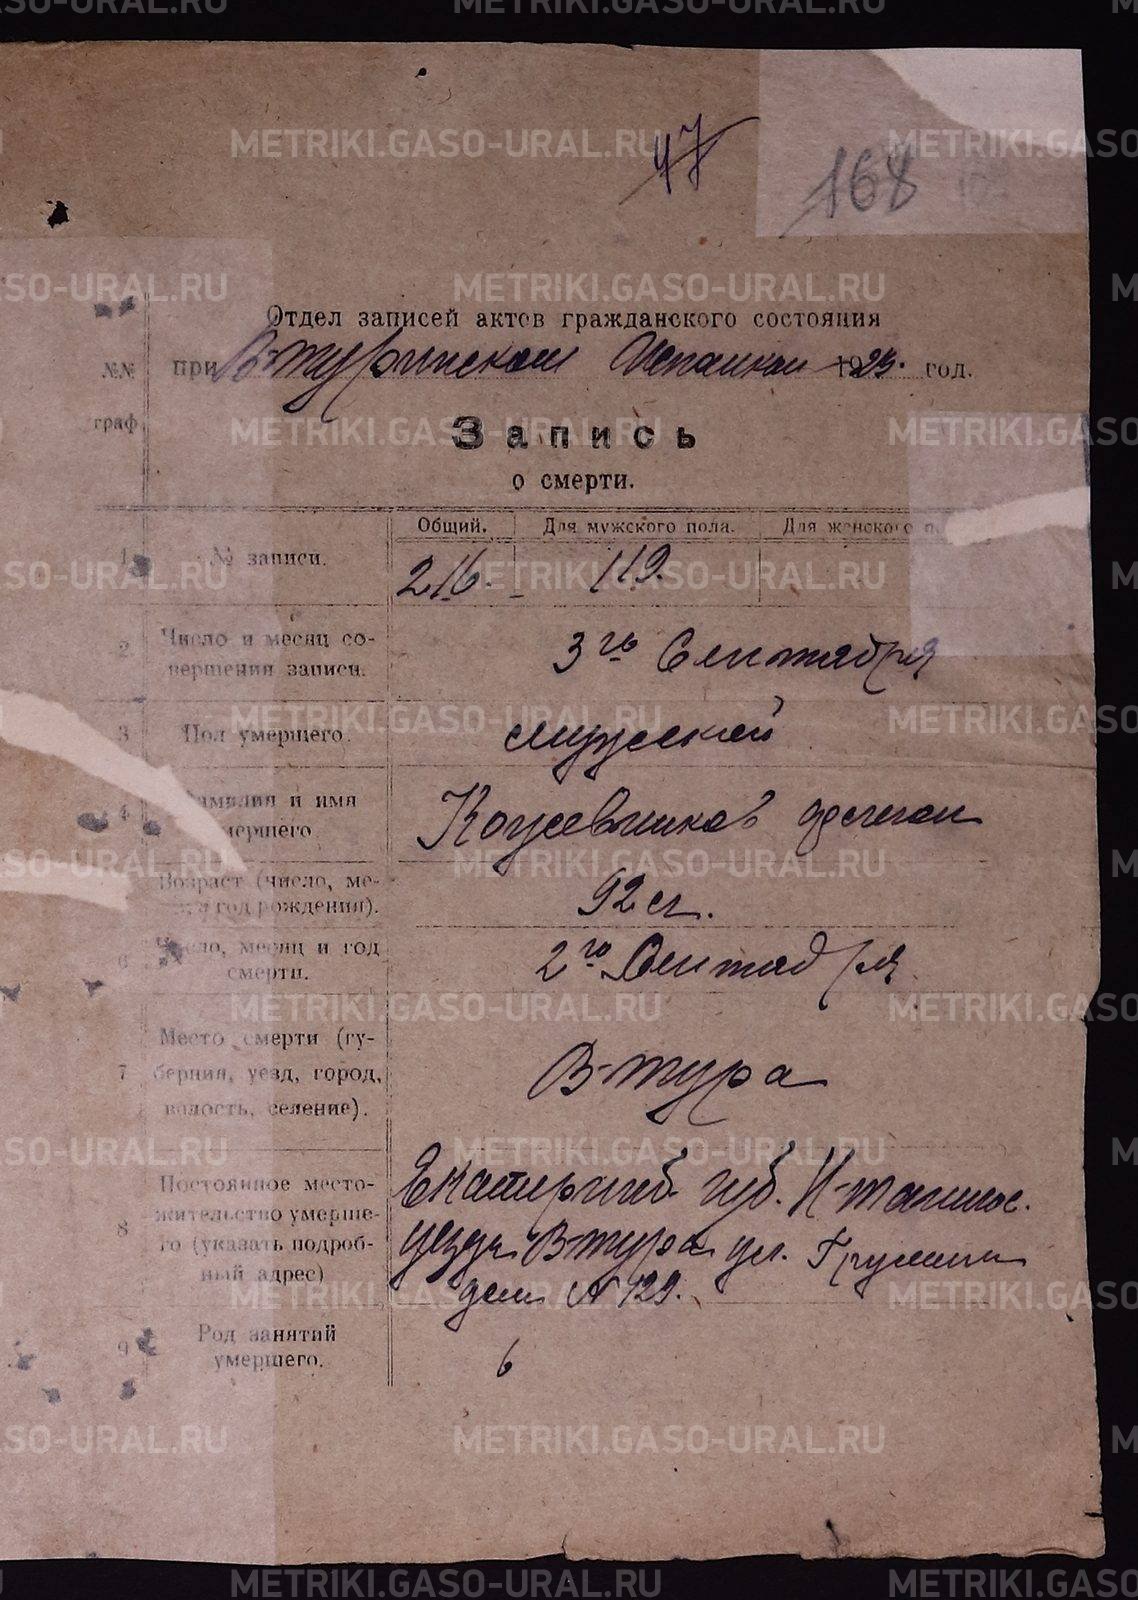 47
168
Отдел записей актов гражданского состояния
№№ при В-туринском Исполком 1923. год.
граф.
Запись
о смерти.
Общий. Для мужского пола. Для женского п
1 № записи. 216. 119.
2 Число и месяц со-
вершения записи. 3го Сентября
3 Пол умершего. мужской
4 Фамилия и имя
умершего. Кожевников
Возраст (число, ме-
год рождения). 92 л.
6 Число, месяц и год
смерти. 2го Сентября
7 Место смерти (гу-
берния, уезд, город,
волость, селение). В-тура
8 Постоянное место-
жительство умерше-
го (указать подроб-
ный адрес)
Екатеринб. губ. Н-тагильс.
уезда В-тура ул.
дом № 129.
9 Род занятий
умершего. 6
METRIKI.GASO-URAL.RU